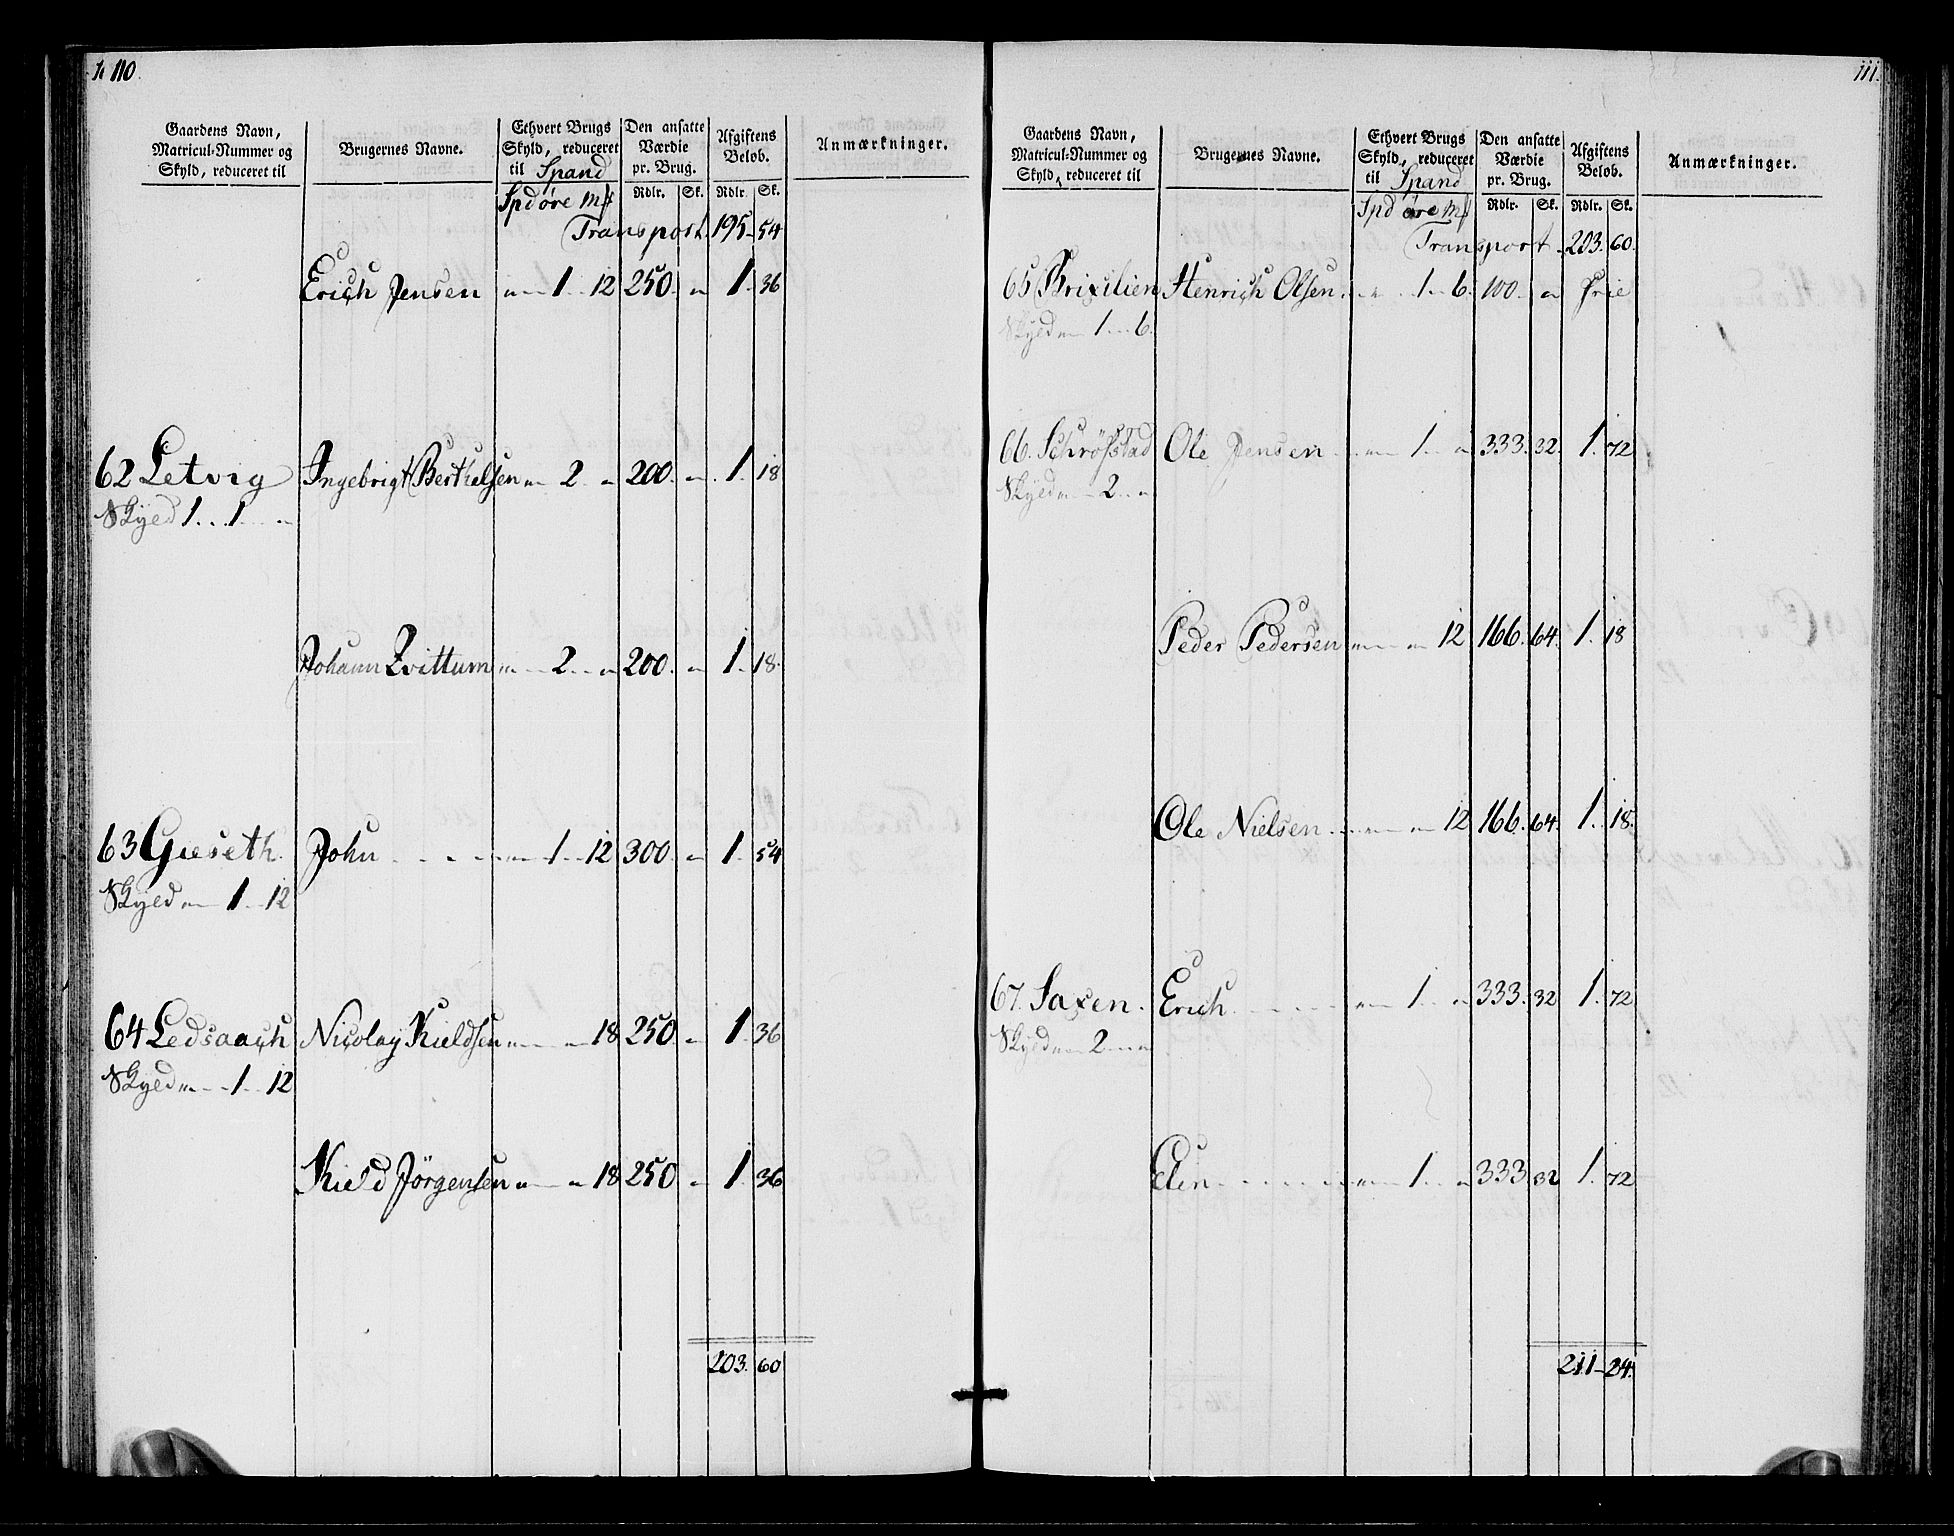 110.
Gaardens Navn,
Matricul-Nummer og
Skyld, reduceret til
Brugernes Navne.
Ethvert Brugs
Skyld, reduceret
til Spand
Den ansatte
Værdie
pr. Brug.
Afgiftens
Beløb.
Anmærkninger.
Spd øre Mſ Rdlr. Sk. Rdlr. Sk.
Transport. 195. 54
Erich Jensen „ 1 12 250. „ 1. 36
62 Letvig Ingebrigt Berthelsen „ 2 „ 200. „ 1. 18
Skyld 1. 1 „
Johann Zvittum „ 2 „ 200. „ 1. 18.
63 Gieseth. John „ 1 12 300. „ 1. 54
Skyld „ 1 12
64 Ledsaach Nicolay Kieldsen „ „ 18 250 „ 1. 36
Skyld „ 1 12
Kield Jörgensen „ „ 18 250 „ 1. 36
203. 60
111.
Gaardens Navn,
Matricul-Nummer og
Skyld, reduceret til
Brugernes Navne.
Ethvert Brugs
Skyld, reduceret
til Spand
Den ansatte
Værdie
pr. Brug.
Afgiftens
Beløb.
Anmærkninger.
Spd øre Mſ Rdlr. Sk. Rdlr. Sk.
Transport. 203. 60.
65 Brixilien Henrich Olsen. „ 1 6. 100. „ Frie
Skyld „ 1 6.
66. Schröfstad Ole Jensen „ 1 „ 333. 32. 1. 72
Skyld „ 2 „
Peder Pedersen „ „ 12 166. 64. 1. 18
Ole Nielsen „ „ 12 166. 64. 1. 18.
67. Saxen. Erich „ 1 „ 333. 32 1. 72
Skyld „ 2 „
Elen „ 1 „ 333 32 1. 72
211 - 24.